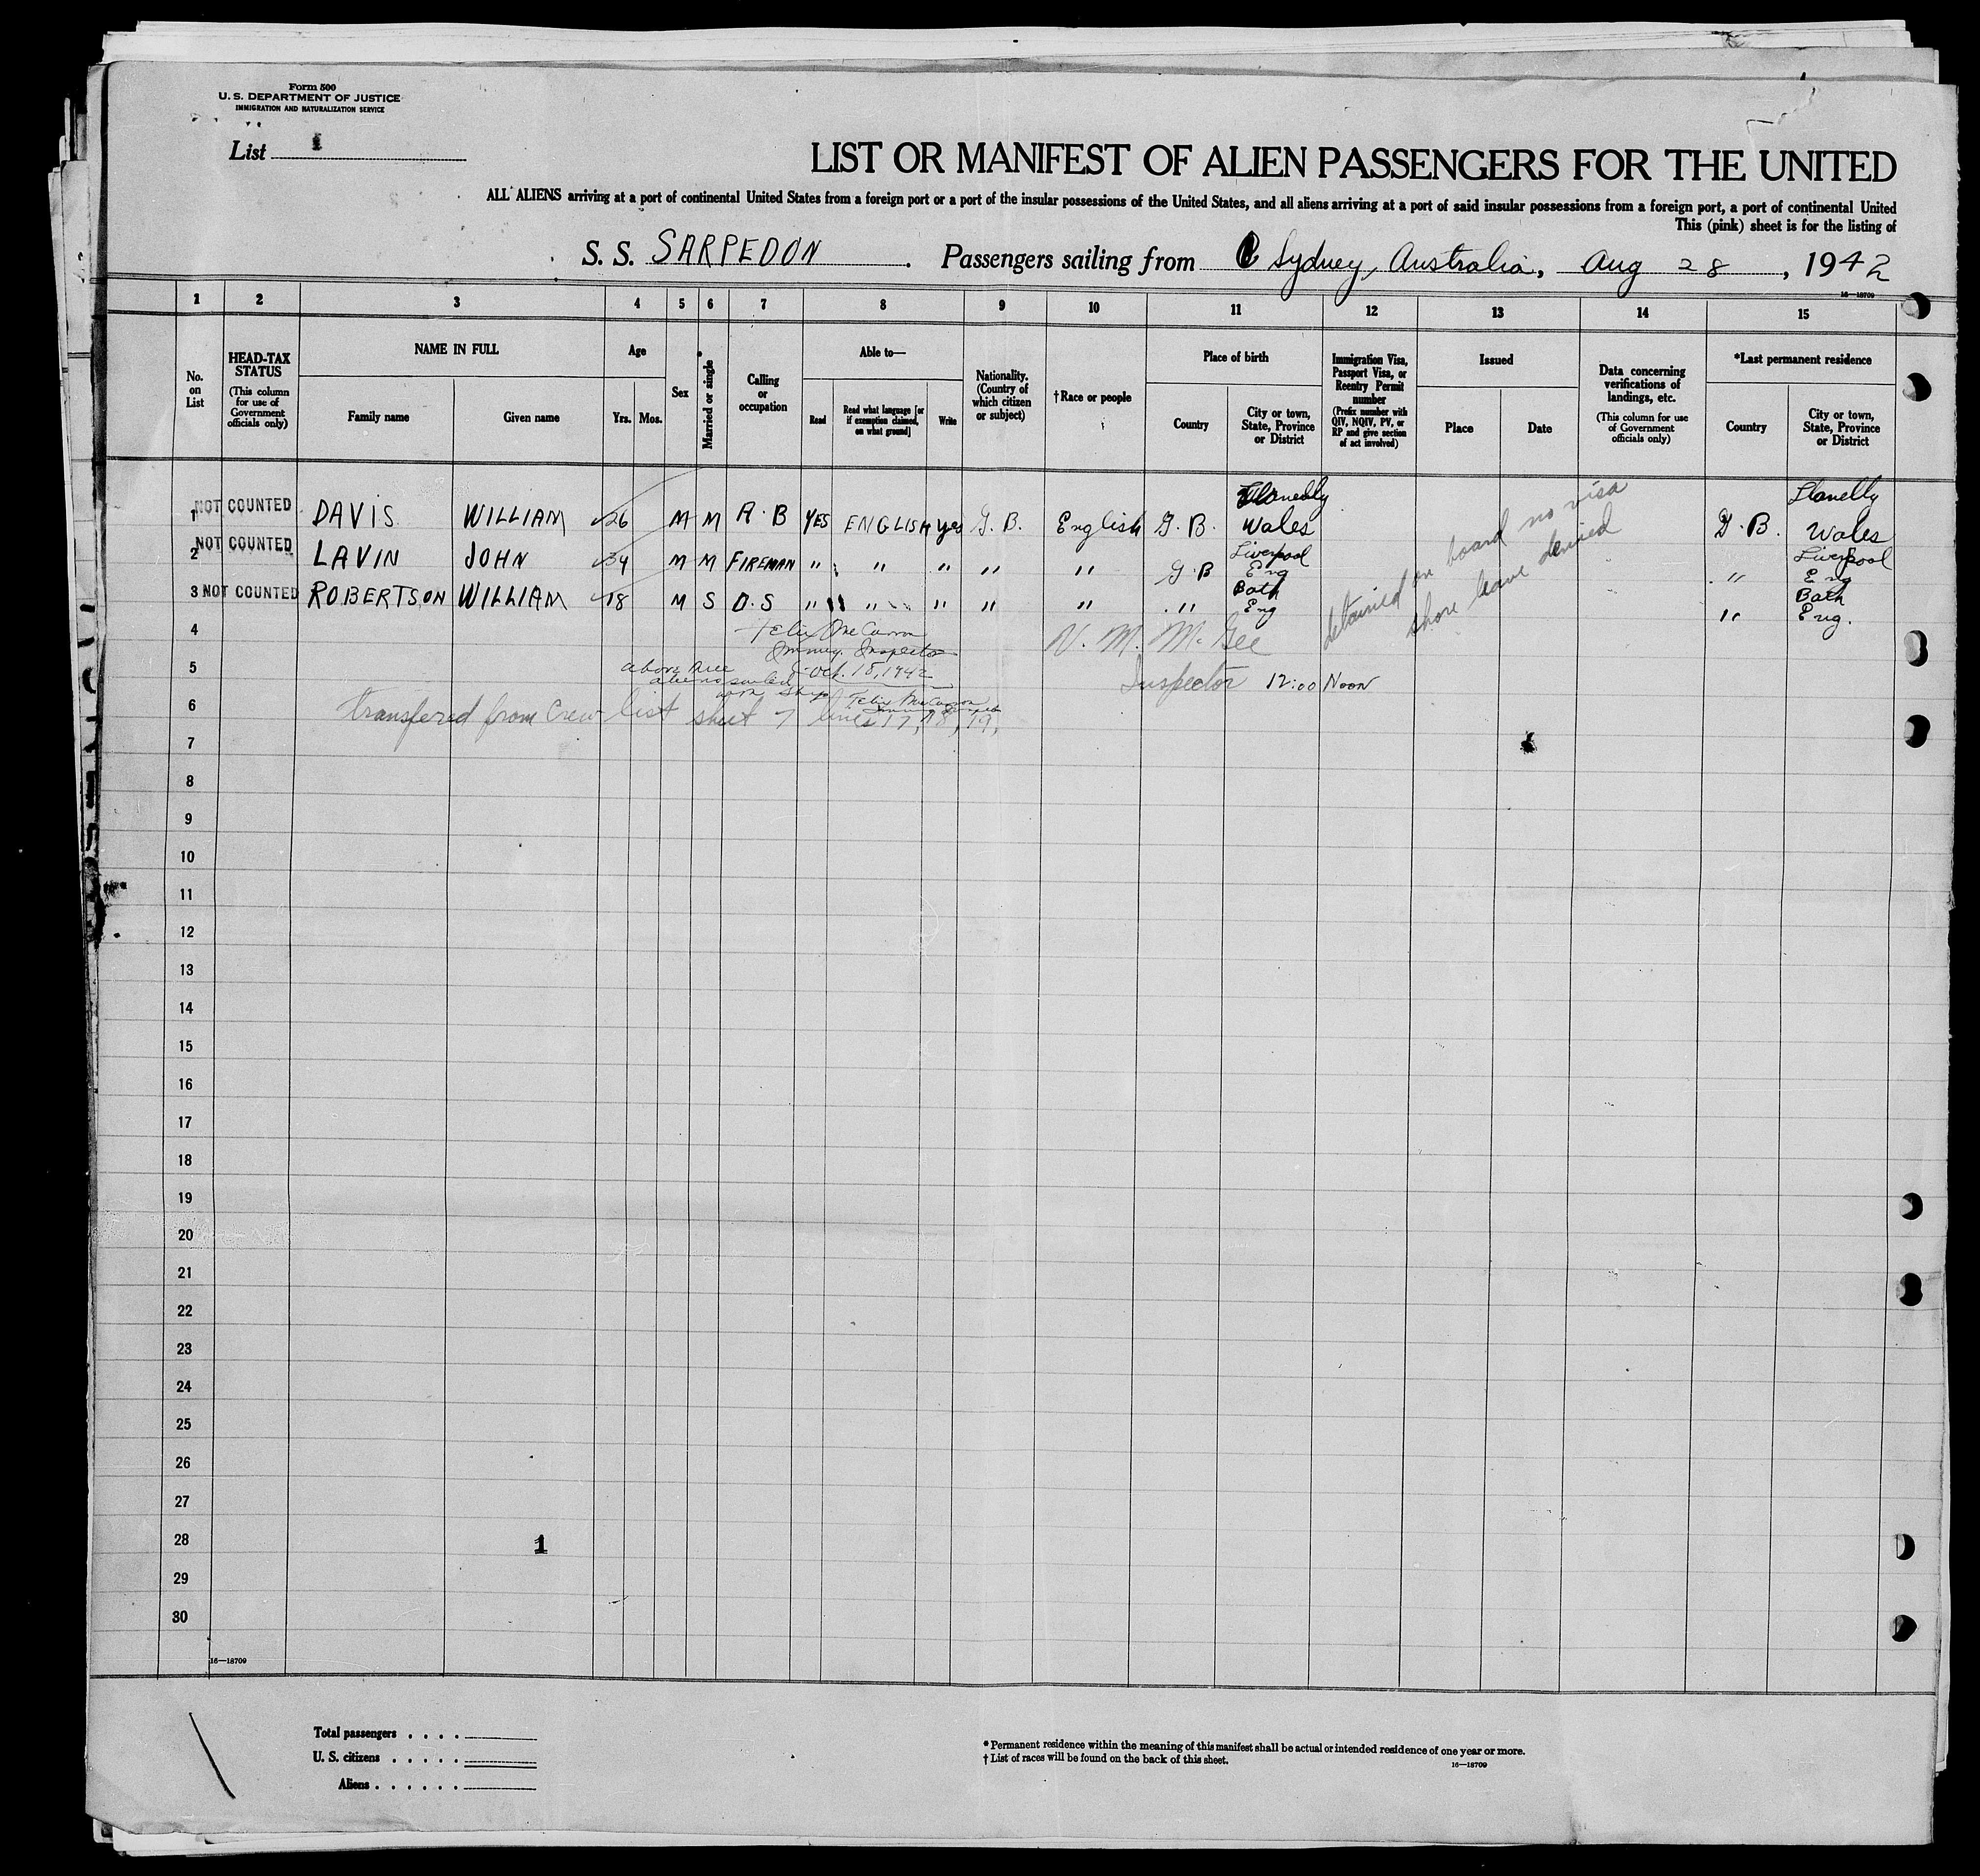 Form 500
U. S. DEPARTMENT OF JUSTICE
IMMIGRATION AND NATURALIZATION SERVICE
List 1
LIST OR MANIFEST OF ALIEN PASSENGERS FOR THE UNITED
ALL ALIENS arriving at a port of continental United States from a foreign port or a port of the insular possessions of the United States, and all aliens arriving at a port of said insular possessions from a foreign port, a port of continental United
This (pink) sheet is for the listing of
S. S. SARPEDON . Passengers sailing from Sydney, Australia, Aug 28, 1942
16—18709
1 2 3 4 5 6 7 8 9 10 11 12 13 14 15
No. on List
HEAD-TAX STATUS
(This column for use of Government officials only)
NAME IN FULL
Family name
Given name
Age
Yrs. Mos.
Sex
Married or single
Calling or occupation
Able to—
Read
Read what language [or if exemption claimed, on what ground]
Write
Nationality. (Country of which citizen or subject)
†Race or people
Place of birth
Country
City or town, State, Province or District
Immigration Visa, Passport Visa, or Reentry Permit number
(Prefix number with QIV, NQIV, PV, or RP and give section of act involved)
Issued
Place
Date
Data concerning verifications of landings, etc.
(This column for use of Government officials only)
*Last permanent residence
Country
City or town, State, Province or District
1 NOT COUNTED DAVIS WILLIAM 26 M M A.B YES ENGLISH yes G.B. English G.B. Llanelly Wales G.B. Llanelly Wales
2 NOT COUNTED LAVIN JOHN 34 M M FIREMAN " " " " " G.B Liverpool Eng " Liverpool Eng
3 NOT COUNTED ROBERTSON WILLIAM 18 M S O.S " " " " " " Bath Eng " Bath Eng.
detained on board no visa
shore leave denied
4 Felix McCarron V. M. McGee
Immig. Inspector
5 above three Oct. 18, 1942 Inspector 12:00 Noon
aliens sailed
with ship Felix McCarron
6 transfered from Crew list sheet 7 lines 17, 18, 19,
7
8
9
10
11
12
13
14
15
16
17
18
19
20
21
22
23
24
25
26
27
28 1
29
30
16—18709
Total passengers . . . .
U. S. citizens . . . . .
Aliens . . . . . .
* Permanent residence within the meaning of this manifest shall be actual or intended residence of one year or more.
† List of races will be found on the back of this sheet.
16—18709